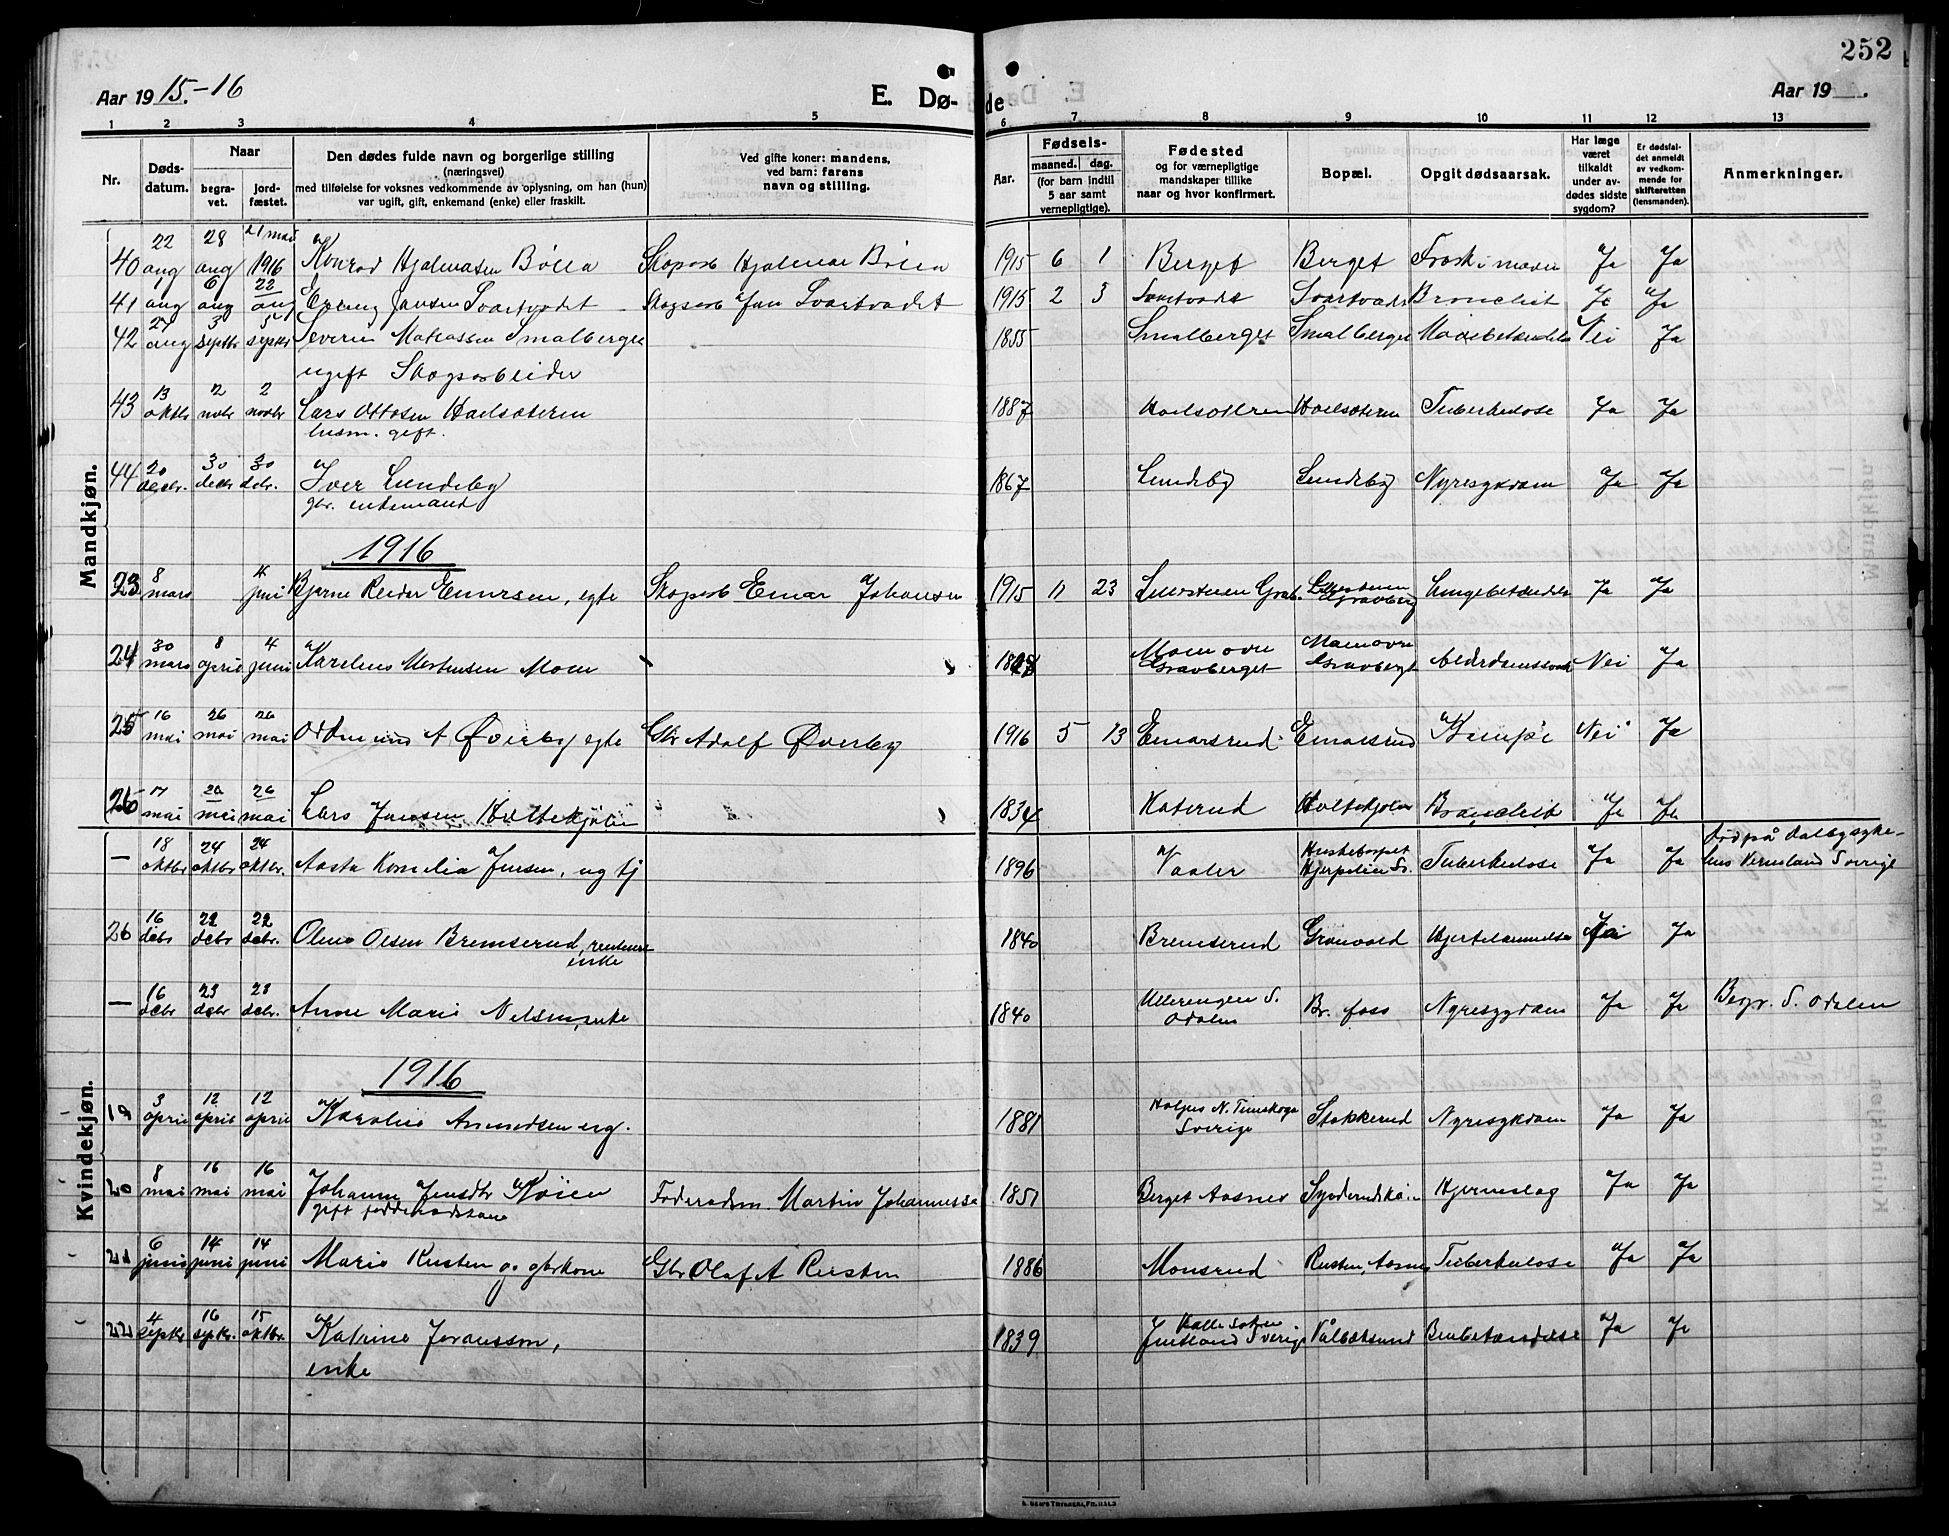 252
Aar 19 15.-16
E. Dø-
de
Aar 19 .
1 2 3 4 5 6 7 8 9 10 11 12 13
Nr.
Døds-
datum.
Naar
begra-
vet.
jord-
fæstet.
Den dødes fulde navn og borgerlige stilling
(næringsvei)
med tilføielse for voksnes vedkommende av oplysning, om han (hun)
var ugift, gift, enkemand (enke) eller fraskilt.
Ved gifte koner: mandens,
ved barn: farens
navn og stilling.
Aar.
Fødsels-
maaned. dag.
(for barn indtil
5 aar samt
vernepligtige).
Fødested
og for værnepligtige
mandskaper tillike
naar og hvor konfirmert.
Bopæl.
Opgit dødsaarsak.
Har læge
været
tilkaldt
under av-
dødes sidste
sygdom?
Er dødsfal-
det anmeldt
av vedkom-
mende for
skifteretten
(lensmanden).
Anmerkninger.
Mandkjøn.
22 28 21 mai
40 aug aug 1916 Konrad Hjalmarsen Bøen Skogsarb Hjalmar Bøen 1915 6 1 Berget Berget Trosk i maven Ja Ja
1 6 22
41 aug aug aug Erling Jansen Svartvadet Skogsarb Jan Svartvadet 1915 2 3 Svartvadet Svartvadet Bronchit Ja Ja
27 3 5
42 aug septbr septbr Severin Matiassen Smalberget 1855 Smalberget Smalberget Mavebetændelse Nei Ja
ugift Skogsarbeider
13 2 2
43 oktbr novbr novbr Lars Ottosen Haelsæteren 1887 Haelsæteren Haelsæteren Tuberkulose Ja Ja
husm. gift.
20 30 30
44 decbr. decbr dcbr. Iver Lundeby 1867 Lundeby Lundeby Nyresygdom Ja Ja
gbr. enkemand
1916
8 4
23 mars juni Bjarne Reidar Einarsen, egte Skogsarb Einar Johansen 1915 11 23 Gravberg Lungebetændelse Ja Ja
30 8 4
24 mars april juni Karelius Mortensen Moen Moen øvre Gravberget Moen øvre Gravberget Alderdomssvak Nei Ja
16 26 26
25 mai mai mai Oddmund A. Øverby egte Gbr Adolf Øverby 1916 5 13 Einarsrud Einarsrud Krampe Nei Ja
17 26 26
26 mai mai mai Lars Jansen Holtekjølen 1834 Haterud Holtekjølen Bronchit Ja Ja
Kvindekjøn.
18 24 24
— oktbr oktbr oktbr. Aasta Kornelia Jensen, ug tj 1896 Vaaler Tuberkulose Ja Ja Død på Dalbysyke-
hus Vermland Sverige
16 22 22
26 dcbr dcbr dcbr. Oline Olsen Bremserud, enke 1840 Bremserud Grønvold Hjertelammelse Ja Ja
16 23 23
— dcbr dcbr dcbr. Anne Marie Nilsen, enke 1840 Ullerengen S. Odalen Br. foss Nyresygdom Ja Ja Begr. S. Odalen
1916
3 12 12
19 april april april Karoline Amundsen ug. 1881 Sverige Stokkerud Nyresykdom Ja Ja
8 16 16
20 mai mai mai Johanne Jensdtr Køien Føderaadsm. Martin Johannessen 1851 Berget Aasnes Hjerneslag Ja Ja
gift føderaadskone
6 14 14
21 juni juni juni Marie Rusten g. gbrkone Gbr Olaf A Rusten 1886 Monsrud Rusten, Aasnes Tuberkulose Ja Ja
4 16 15
22 septbr septbr. oktbr. Katrine Joransson, 1839 Jentland Sverige Ja Ja
enke